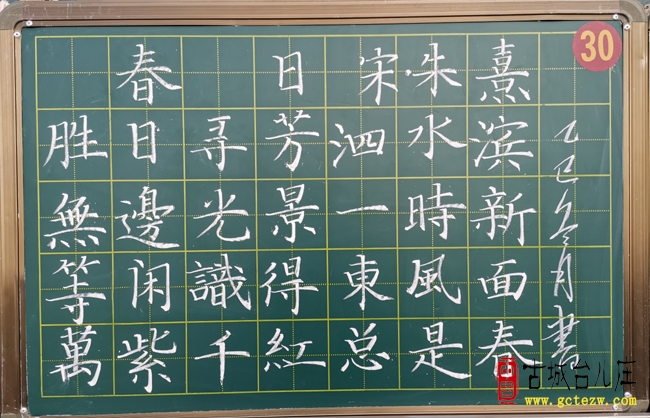 30
春日 宋·朱熹
胜日寻芳泗水滨
無邊光景一時新
等闲識得東風面
萬紫千紅总是春
乙巳冬月書
古城台儿庄
www.gctezw.com